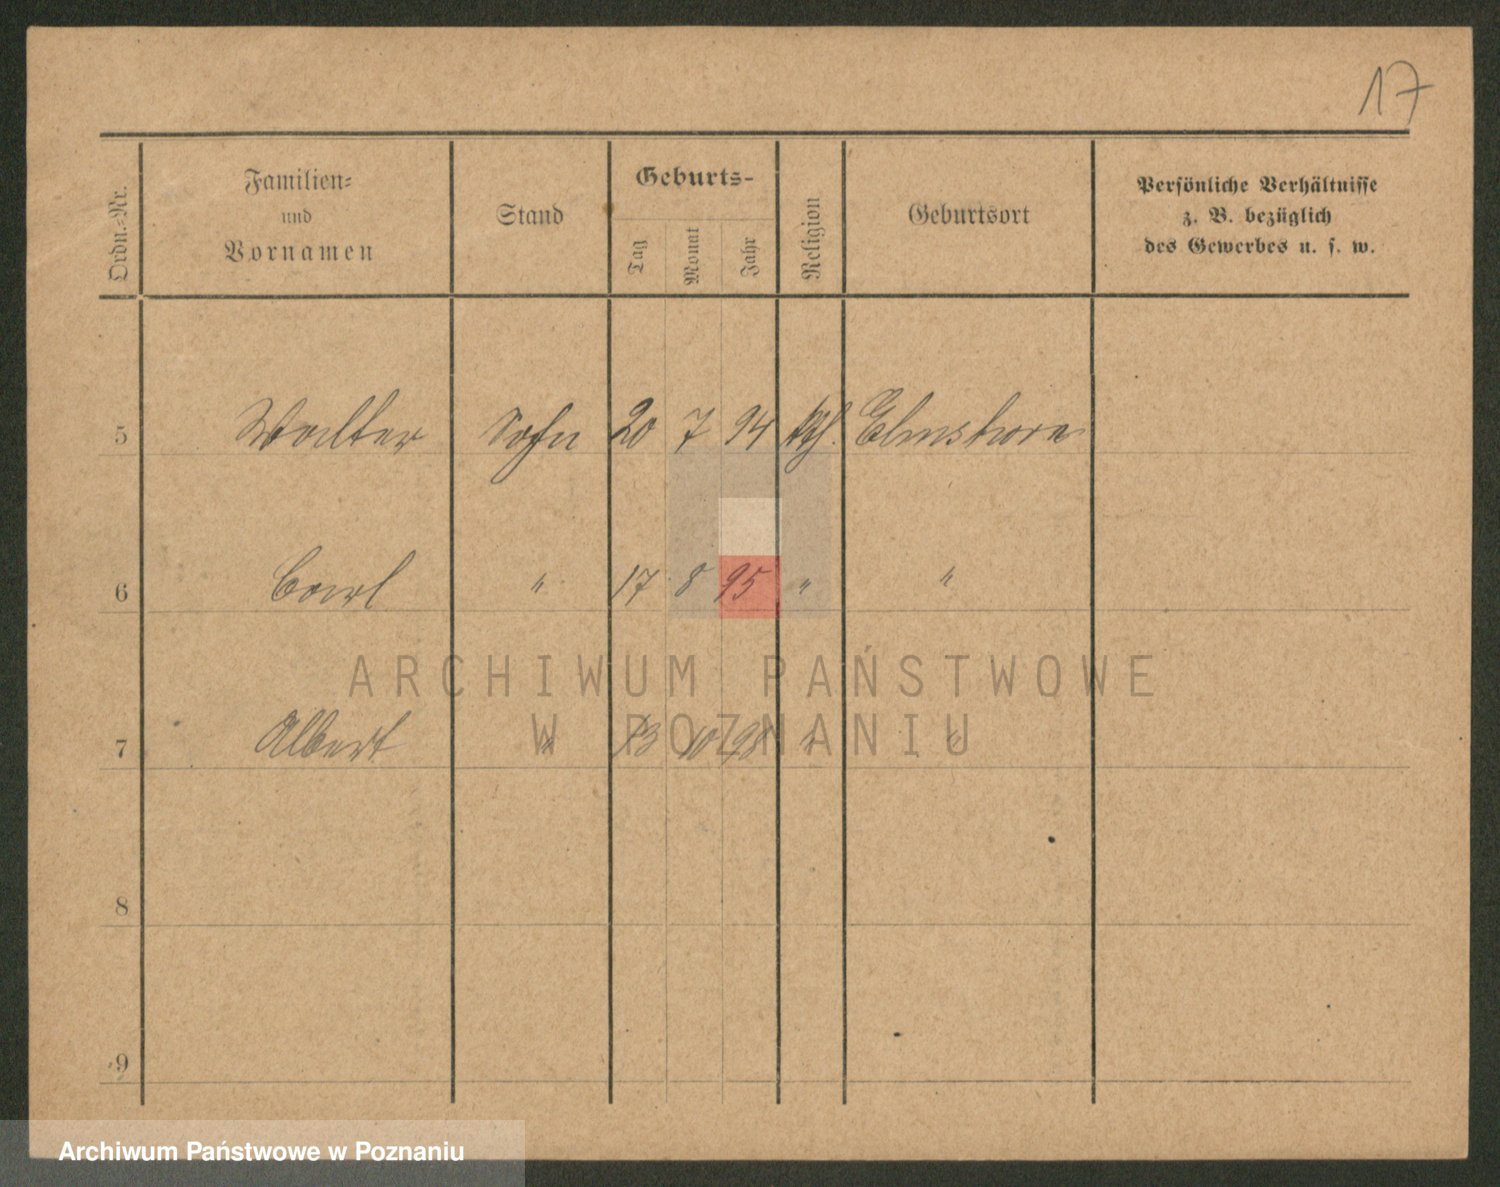 17
Ordn.-Nr.
Familien-
und
Vornamen
Stand
Geburts-
Tag
Monat
Jahr
Religion
Geburtsort
Persönliche Verhältnisse
z. B. bezüglich
des Gewerbes u. s. w.
5 Walter Sohn 20 7 94 Elmshorn
6 Carl " 17 8 95 " "
ARCHIWUM PAŃSTWOWE
W POZNANIU
7 Albert " 13 10 98 " "
8
9
Archiwum Państwowe w Poznaniu